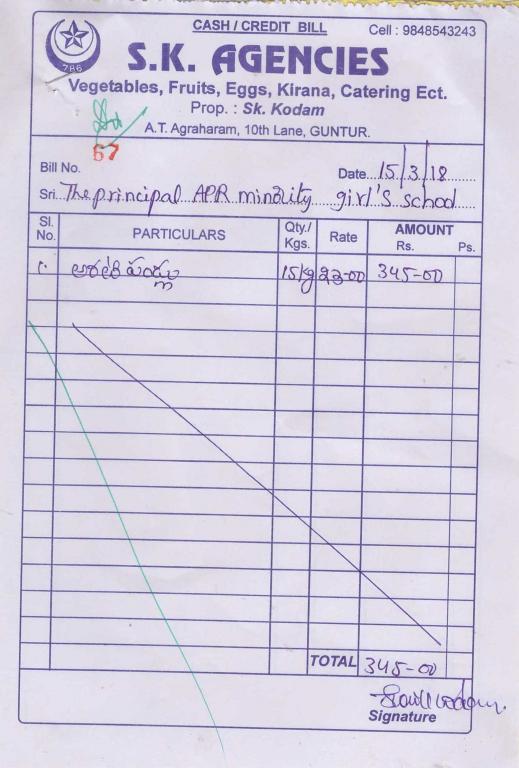 CASH / CREDIT BILL
Cell : 9848543243
786
S.K. AGENCIES
Vegetables, Fruits, Eggs, Kirana, Catering Ect.
Prop. : Sk. Kodam
A.T. Agraharam, 10th Lane, GUNTUR.
67
Bill No.
Date 15/3/18
Sri. The principal APR minority girl's school
Sl. No. PARTICULARS Qty./ Kgs. Rate AMOUNT Rs. Ps.
1. అరటి పండ్లు 15kg 23-00 345-00
TOTAL 345-00
Signature